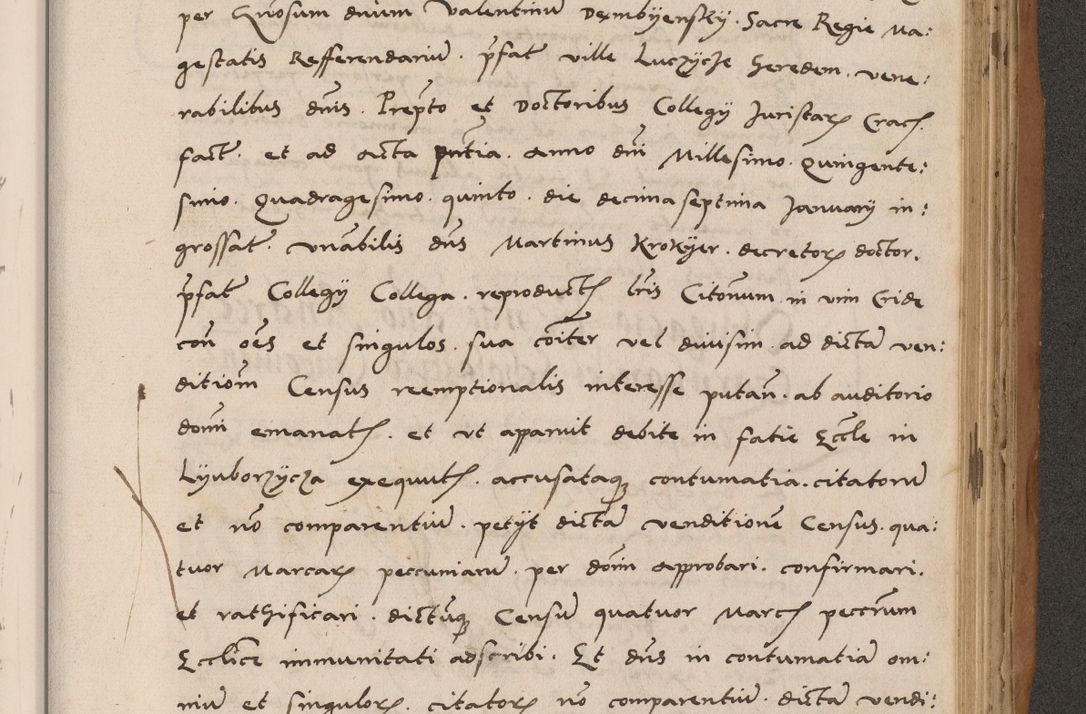 per Gnosum dnum Valentinu Dembyensky. Sacre Regie Ma:
gestatis Refferendariu. pfat ville Luczycze heredem. vene:
rabilibus dnis. Prepto et Doctoribus Collegy Juristar Crac.
fact. et ad acta pntia. Anno dni Millesimo. Quingente:
simo. Quadragesimo. quinto. die decima septima January in:
grossat. vnabilis dns Martinus Krokyer. decretor doctor.
pfat Collegy Collega. reproduct lris Citonum in vim Eide
con oes et singulos. sua coiter vel diuisim. ad dicta ven:
ditiom Census reemptionalis interesse putan. ab auditorio
domi emanat. et vt apparuit debite in facie Eccle in
Lyuborzycza exequut. accusataq contumatia. citatoru
et no comparentiu. petyt dicta venditione Census. qua:
tuor Marcar peccuniaru. per dnm approbari. confirmari.
et rathificari. dictuq Censu quatuor Marc peccrum
Ecclice immunitati adscribi. Et dns in contumatia om:
niu et singulor. citator no comparentiu. dicta vendi: